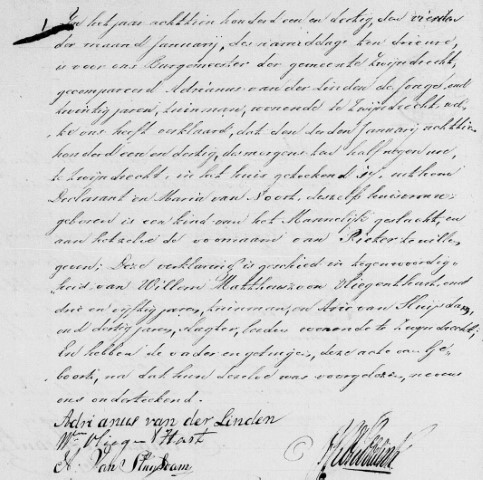 1 In het jaar achttien honderd een en dertig, den vierden
der maand Januarij, des namiddags ten drie ure,
is voor ons Burgemeester der gemeente Zwijndrecht,
gecompareerd Adrianus van der Linden de Jonge, oud
twintig jaren, tuinman, wonende te Zwijndrecht, wel-
ke ons heeft verklaard, dat den derden Januarij achttien
honderd een en dertig, des morgens ten half negen ure,
te Zwijndrecht, in het huis getekend uit hem
Declarant en Maria van Noort, deszelfs huisvrouw
geboren is een kind van het Mannelijk geslacht, en
aan hetzelve de voornaam van Pieter te willen
geven; Deze verklaring is geschied in tegenwoordig-
heid van Willem Mattheus van Vliegenthart, oud
drie en vijftig jaren, tuinman, en Arie van Sluijsdam,
oud dertig jaren, slagter, beiden wonende te Zwijndrecht;
En hebben de vader en getuigen, deze acte van Ge-
boorte, na dat hun dezelve was voorgelezen, nevens
ons onderteekend.
Adrianus van der Linden
Wm Vliegenthart
A. Van Sluijsdam